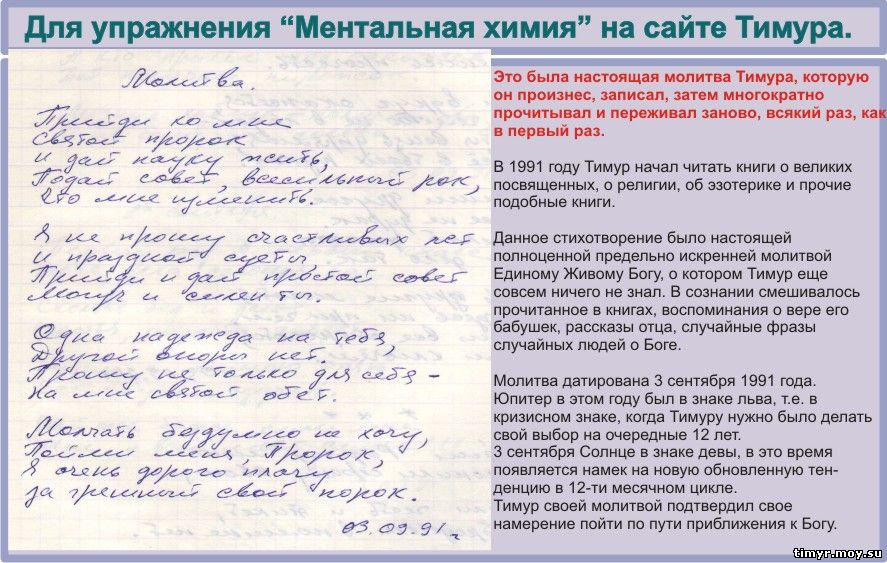 Для упражнения “Ментальная химия” на сайте Тимура.
Молитва.
Прийди ко мне
святой пророк
и дай науку жить,
Подай совет, всесильный рок,
Что мне изменить.
Я не прошу счастливых лет
и праздной суеты,
Прийди и дай простой совет
могуч и силен ты.
Одна надежда на тебя,
Другой опоры нет.
Прошу не только для себя –
на мне святой обет.
Молчать бездумно не хочу,
Пойми меня, Пророк,
Я очень дорого плачу
за грешный свой порок.
03.09.91г.
Это была настоящая молитва Тимура, которую
он произнес, записал, затем многократно
прочитывал и переживал заново, всякий раз, как
в первый раз.
В 1991 году Тимур начал читать книги о великих
посвященных, о религии, об эзотерике и прочие
подобные книги.
Данное стихотворение было настоящей
полноценной предельно искренней молитвой
Единому Живому Богу, о котором Тимур еще
совсем ничего не знал. В сознании смешивалось
прочитанное в книгах, воспоминания о вере его
бабушек, рассказы отца, случайные фразы
случайных людей о Боге.
Молитва датирована 3 сентября 1991 года.
Юпитер в этом году был в знаке льва, т.е. в
кризисном знаке, когда Тимуру нужно было делать
свой выбор на очередные 12 лет.
3 сентября Солнце в знаке девы, в это время
появляется намек на новую обновленную тен-
денцию в 12-ти месячном цикле.
Тимур своей молитвой подтвердил свое
намерение пойти по пути приближения к Богу.
timyr.moy.su